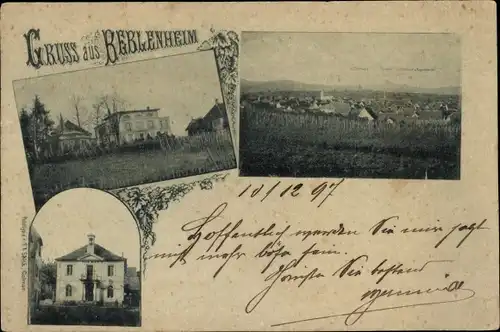 GRUSS aus BEBLENHEIM
10/12 97
Hoffentlich werden Sie mir jetzt
nicht mehr böse sein.
Sie bestens